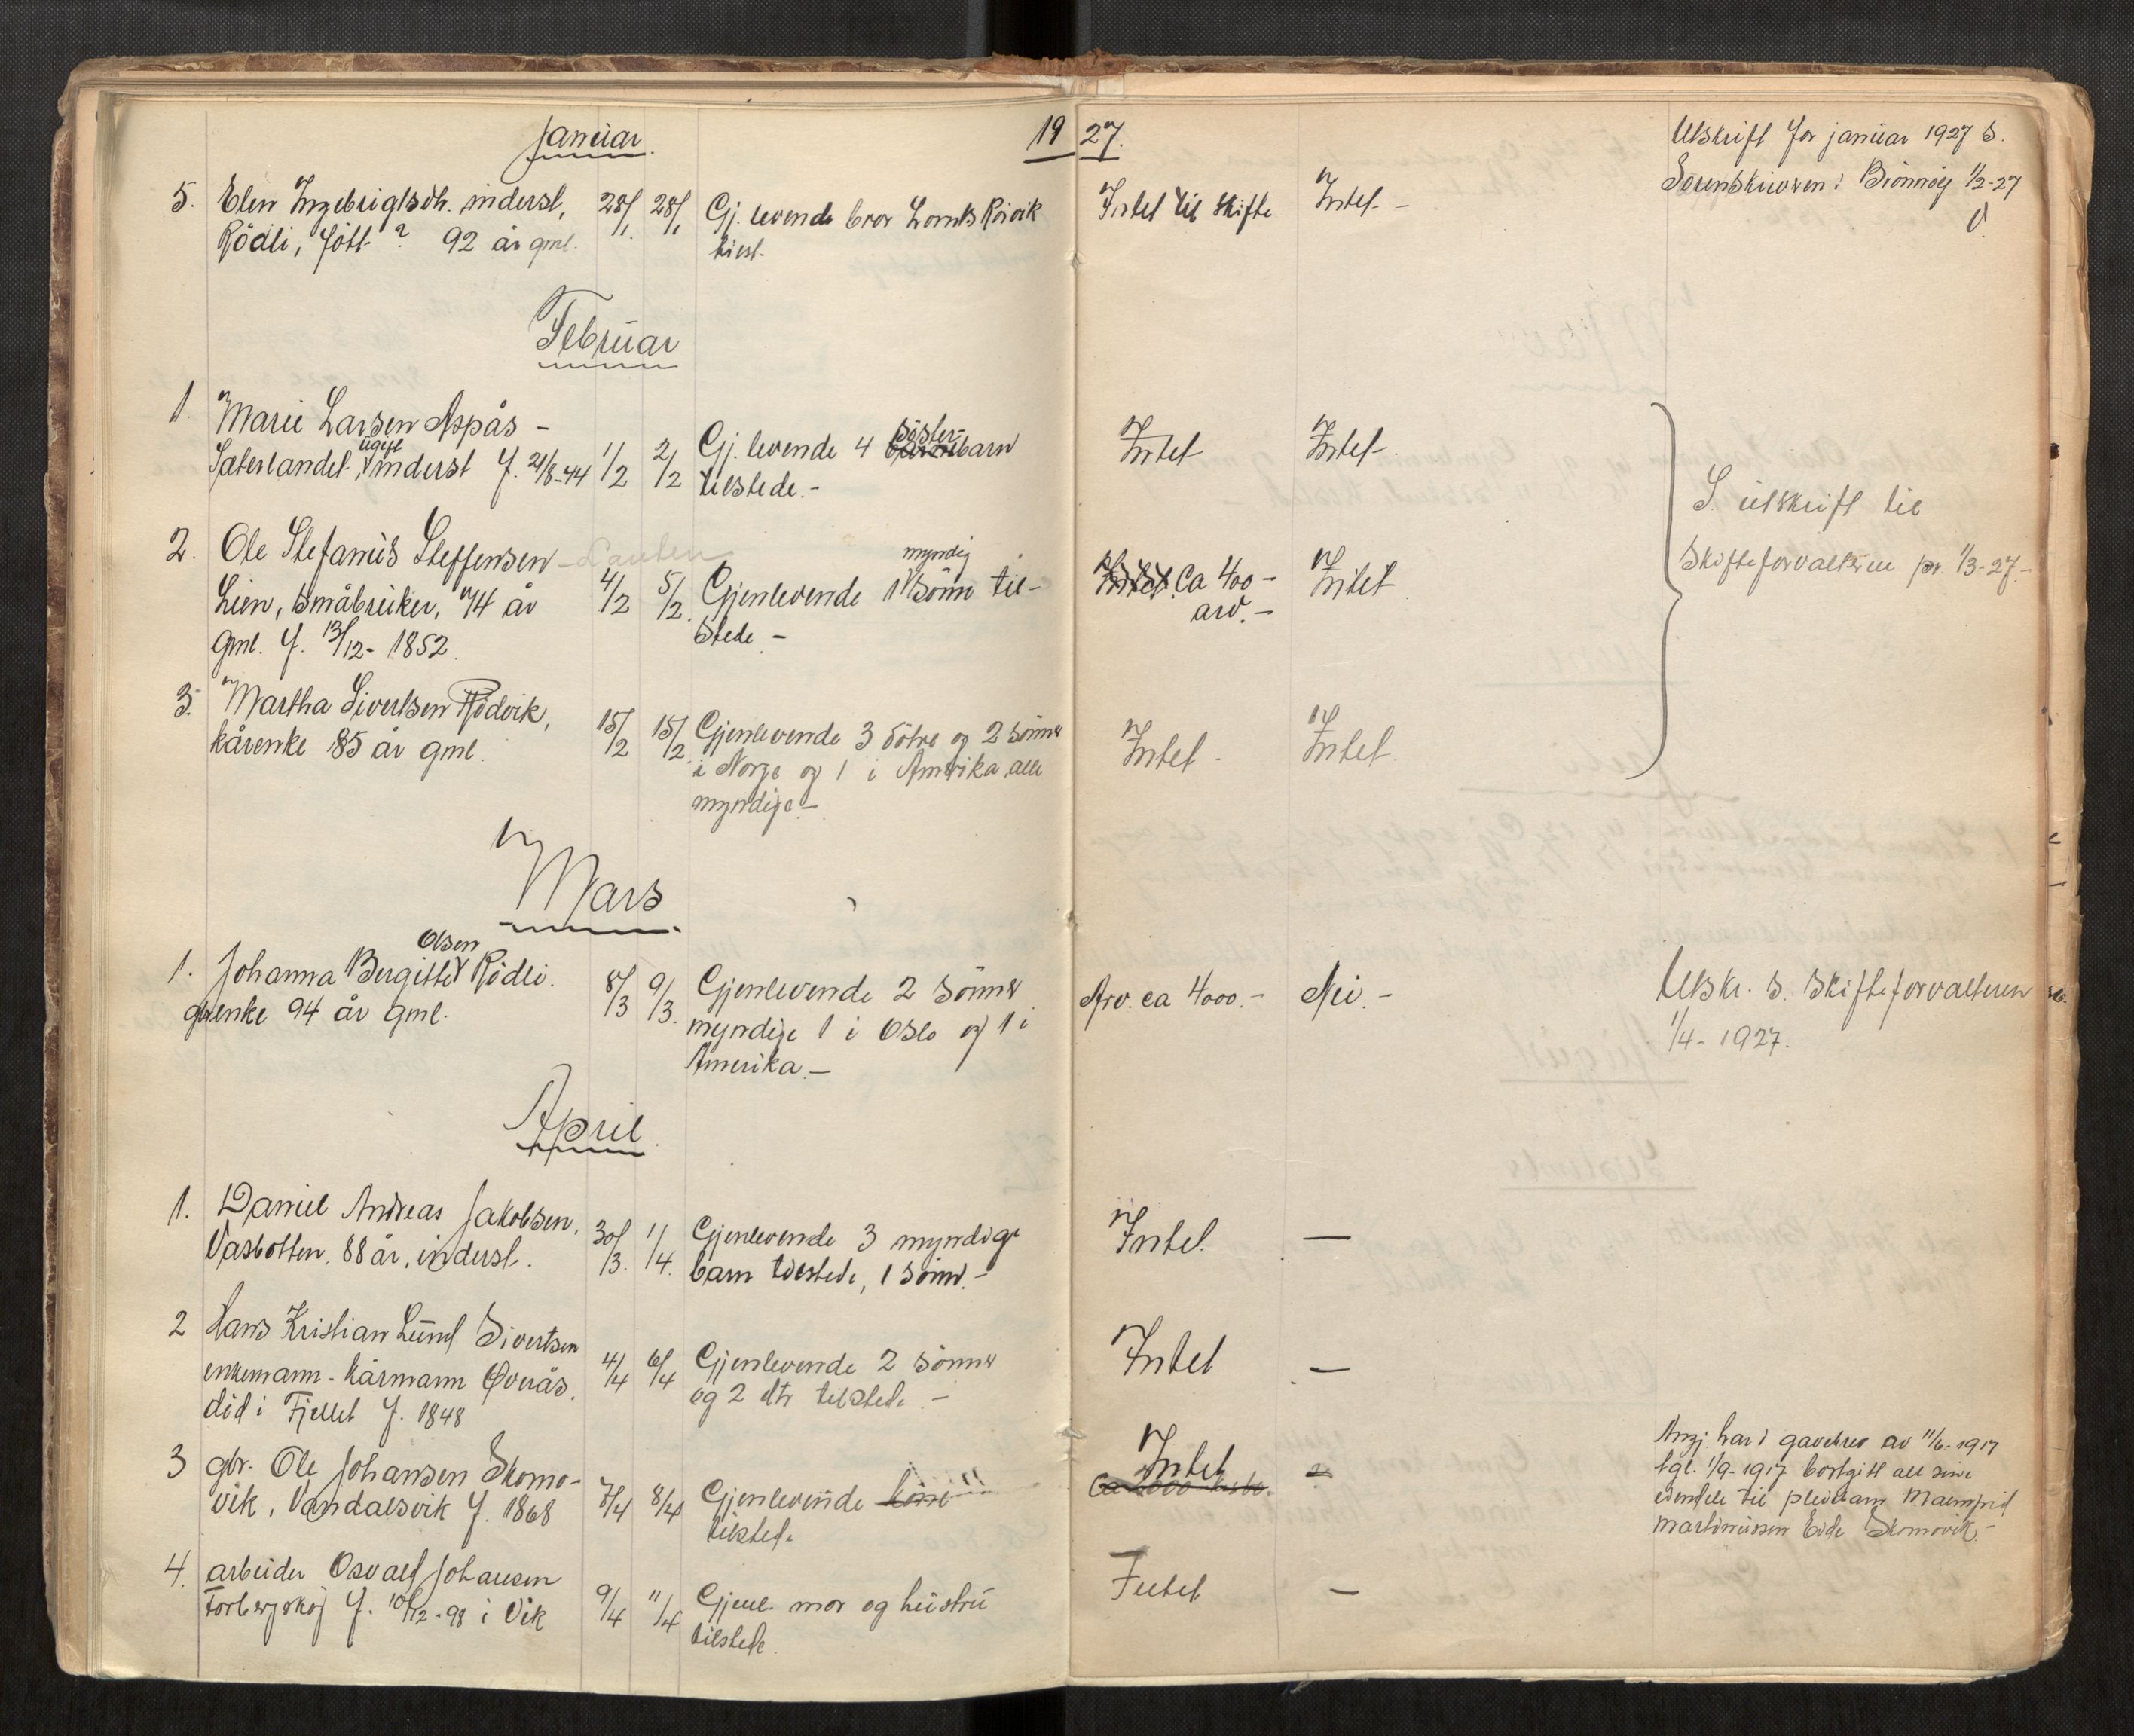 Januar.
1927.
Utskrift for januar 1927 s.
Sorenskriveren i Brönnöy 1/2-27
5. Elen Ingebrigtsdtr. inderst, 28/1. 28/1 Gj. levende bror Tilst. Intet til skifte Intet. -
Rödli, födt ? 92 år gml.
Februar
1. Marie Larsen Aspås -
Säterlandet ugift inderst f. 21/8-44 1/2 2/2 Gj. levende 4 söster-barn Intet Intet-
tilstede. -
S. utskrift til
Skifteforvalteren pr. 1/3-27. -
2. Ole Stefanus Steffensen -
Lien, småbruker, 74 år 4/2 5/2. Gjenlevende 1 myndig sönn til- Intet Ca 400 - Intet
arv. -
gml. f. 13/12- 1852. stede -
3. Martha Sivertsen Rödvik, 15/2 15/2. Gjenlevende 3 dötre og 2 sönner Intet - Intet.
kårenke 85 år gml. i Norge og 1 i Amerika alle
myndige. -
Mars
1. Johanna Bergitte Olsen Rödli. 8/3 9/3. Gjenlevende 2 sönner Arv. ca 4000. - Nei. - Utskr. s. Skifteforvalteren
enke 94 år gml. myndige 1 i Oslo og 1 i 1/4- 1927.
Amerika. -
April.
1. Daniel Andreas Jakobsen, 30/3. 1/4. Gjenlevende 3 myndige Intet. —
Vasbotten, 88 år, inderst. barn tilstede, 1 sönn. -
2 Hans Kristian Lund Sivertsen
enkemann - kårmann Øverås. 4/4 6/4 Gjenlevende 2 sönner Intet —
död i Fjellet f. 1848 og 2 dtr tilstede. -
3 gbr. Ole Johansen Skomo- 7/4 8/4 Gjenlevende kone Intet
vik, Vandalsvik f. 1868 tilstede Ca 2000
Angj. har i gavebrev av 11/6-1917
tgl. 1/9-1917 bortgitt all sine
eiendele til pleiebarn
Martinussen Eide Skomovik. -
4. arbeider Osvald Johansen
f. 10/12-98 i Vik 9/4 11/4 Gjenl. mor og hustru Intet —
tilstede.